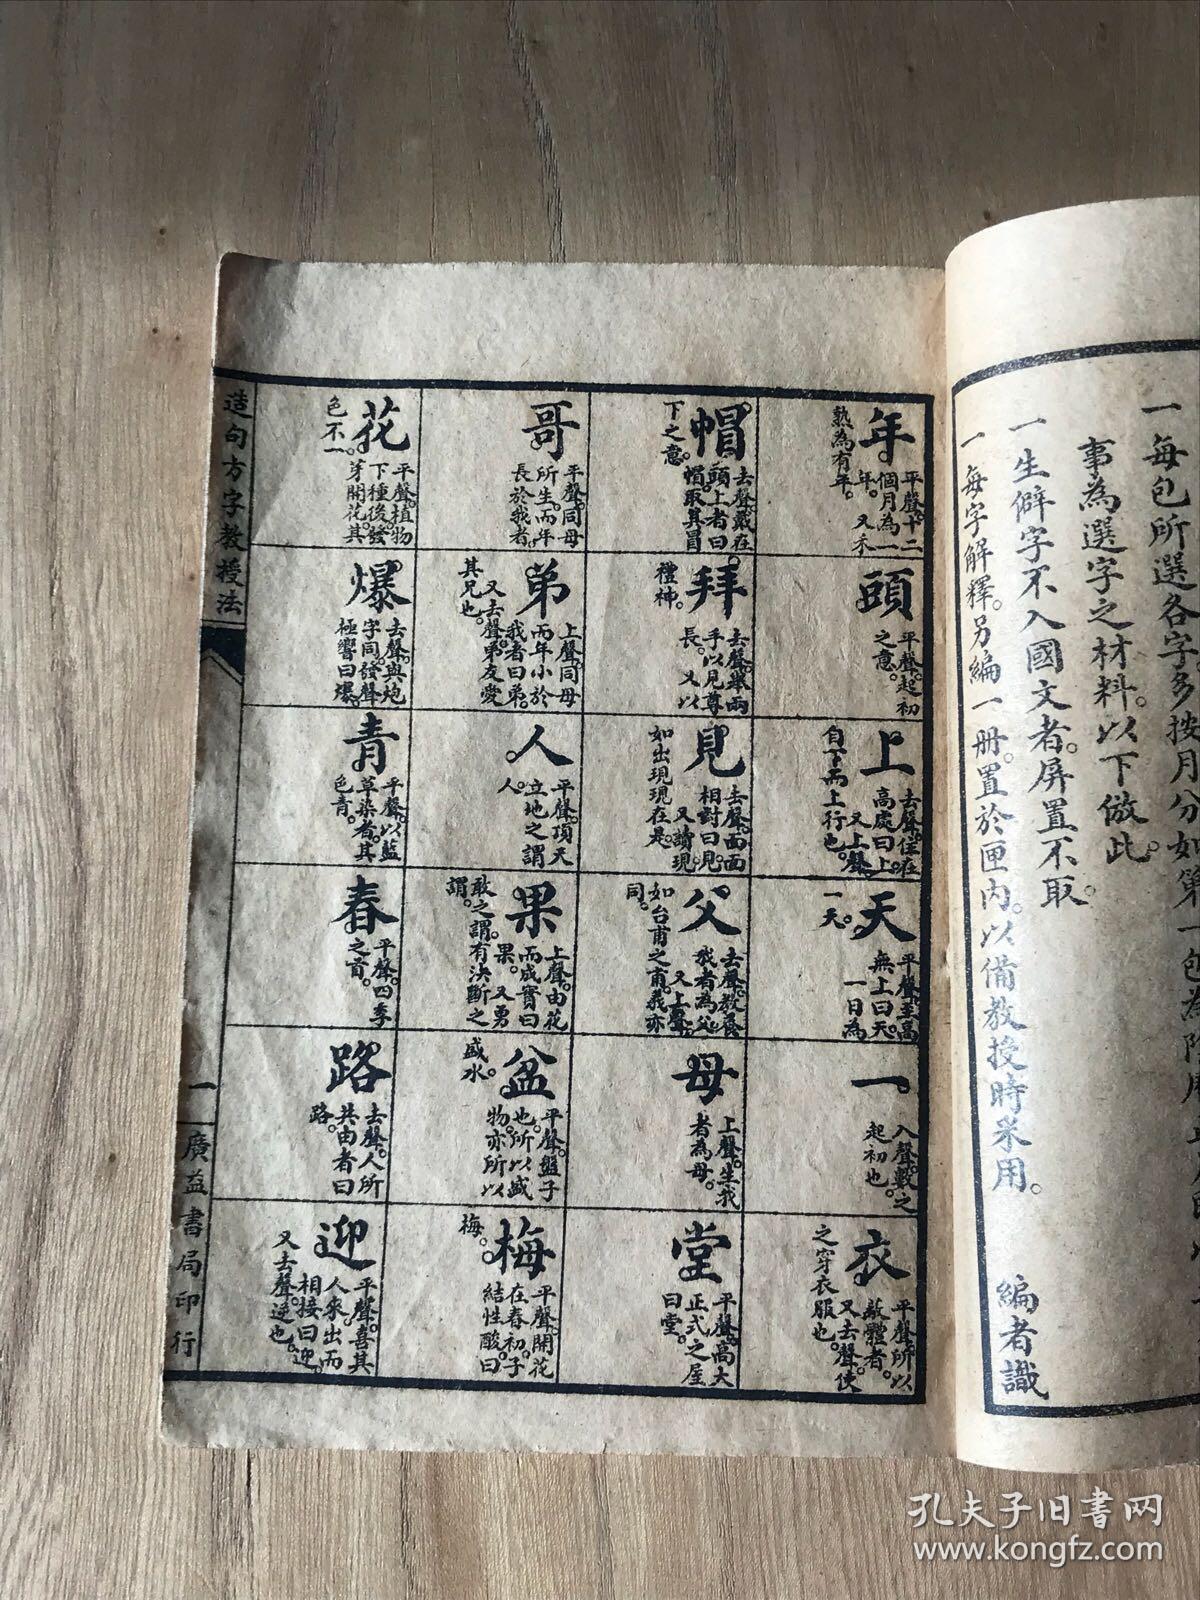 一每包所選各字多按月分如第一包為
事為選字之材料。以下倣此。
一生僻字不入國文者。屏置不取。
一每字解釋。另編一册。置於匣內。以備教授時采用。
編者識
年 平聲。十二個月為一年。又禾熟為有年。
頭 平聲。起初之意。
上 去聲。位在高處曰上。又上聲。自下而上行也。
天 平聲。至高無上曰天。一日為一天。
一 入聲。數之起初也。
衣 平聲。所以蔽體者。又去聲。使之穿衣服也。
帽 去聲。戴在頭上者曰帽。取其冒下之意。
拜 去聲。舉兩手以見尊長。又以禮神。
見 去聲。面面相對曰見。又讀現。如出現現在是。
父 去聲。教養我者為父。又上聲。如台甫之甫。義亦同。
母 上聲。生我者為母。
堂 平聲。高大正式之屋曰堂。
哥 平聲。同母所生。而年長於我者。
弟 上聲。同母而年小於我者曰弟。又去聲。弟友愛其兄也。
人 平聲。頂天立地之謂人。
果 上聲。由花而成實曰果。又勇敢之謂。有決斷之謂。
盆 平聲。盤子也。所以盛物。亦所以盛水。
梅 平聲。開花在春初。子結性酸曰梅。
花 平聲。植物下種後。發芽開花。其色不一。
爆 去聲。與炮字同。發聲極響曰爆。
青 平聲。以藍草染者。其色青。
春 平聲。四季之首。
路 去聲。人所共由者曰路。
迎 平聲。喜其人來。出而相接曰迎。又去聲。迓也。
造句方字教授法
一
廣益書局印行
孔夫子旧書网
www.kongfz.com